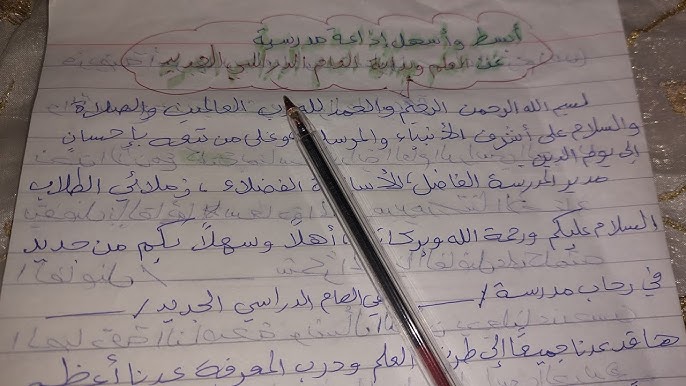 أبسط وأسهل إذاعة مدرسية
عن العلم وبداية العام الدراسي الجديد
بسم الله الرحمن الرحيم والحمد لله رب العالمين والصلاة
والسلام على أشرف الأنبياء والمرسلين وعلى من تبعه بإحسان
إلى يوم الدين
مدير المدرسة الفاضل، الأساتذة الفضلاء، زملائي الطلاب
السلام عليكم ورحمة الله وبركاته أهلاً وسهلاً بكم من جديد
في رحاب مدرسة / ____ في العام الدراسي الجديد / ____
ها قد عدنا جميعًا إلى طريق العلم ودرب المعرفة عدنا أعظم